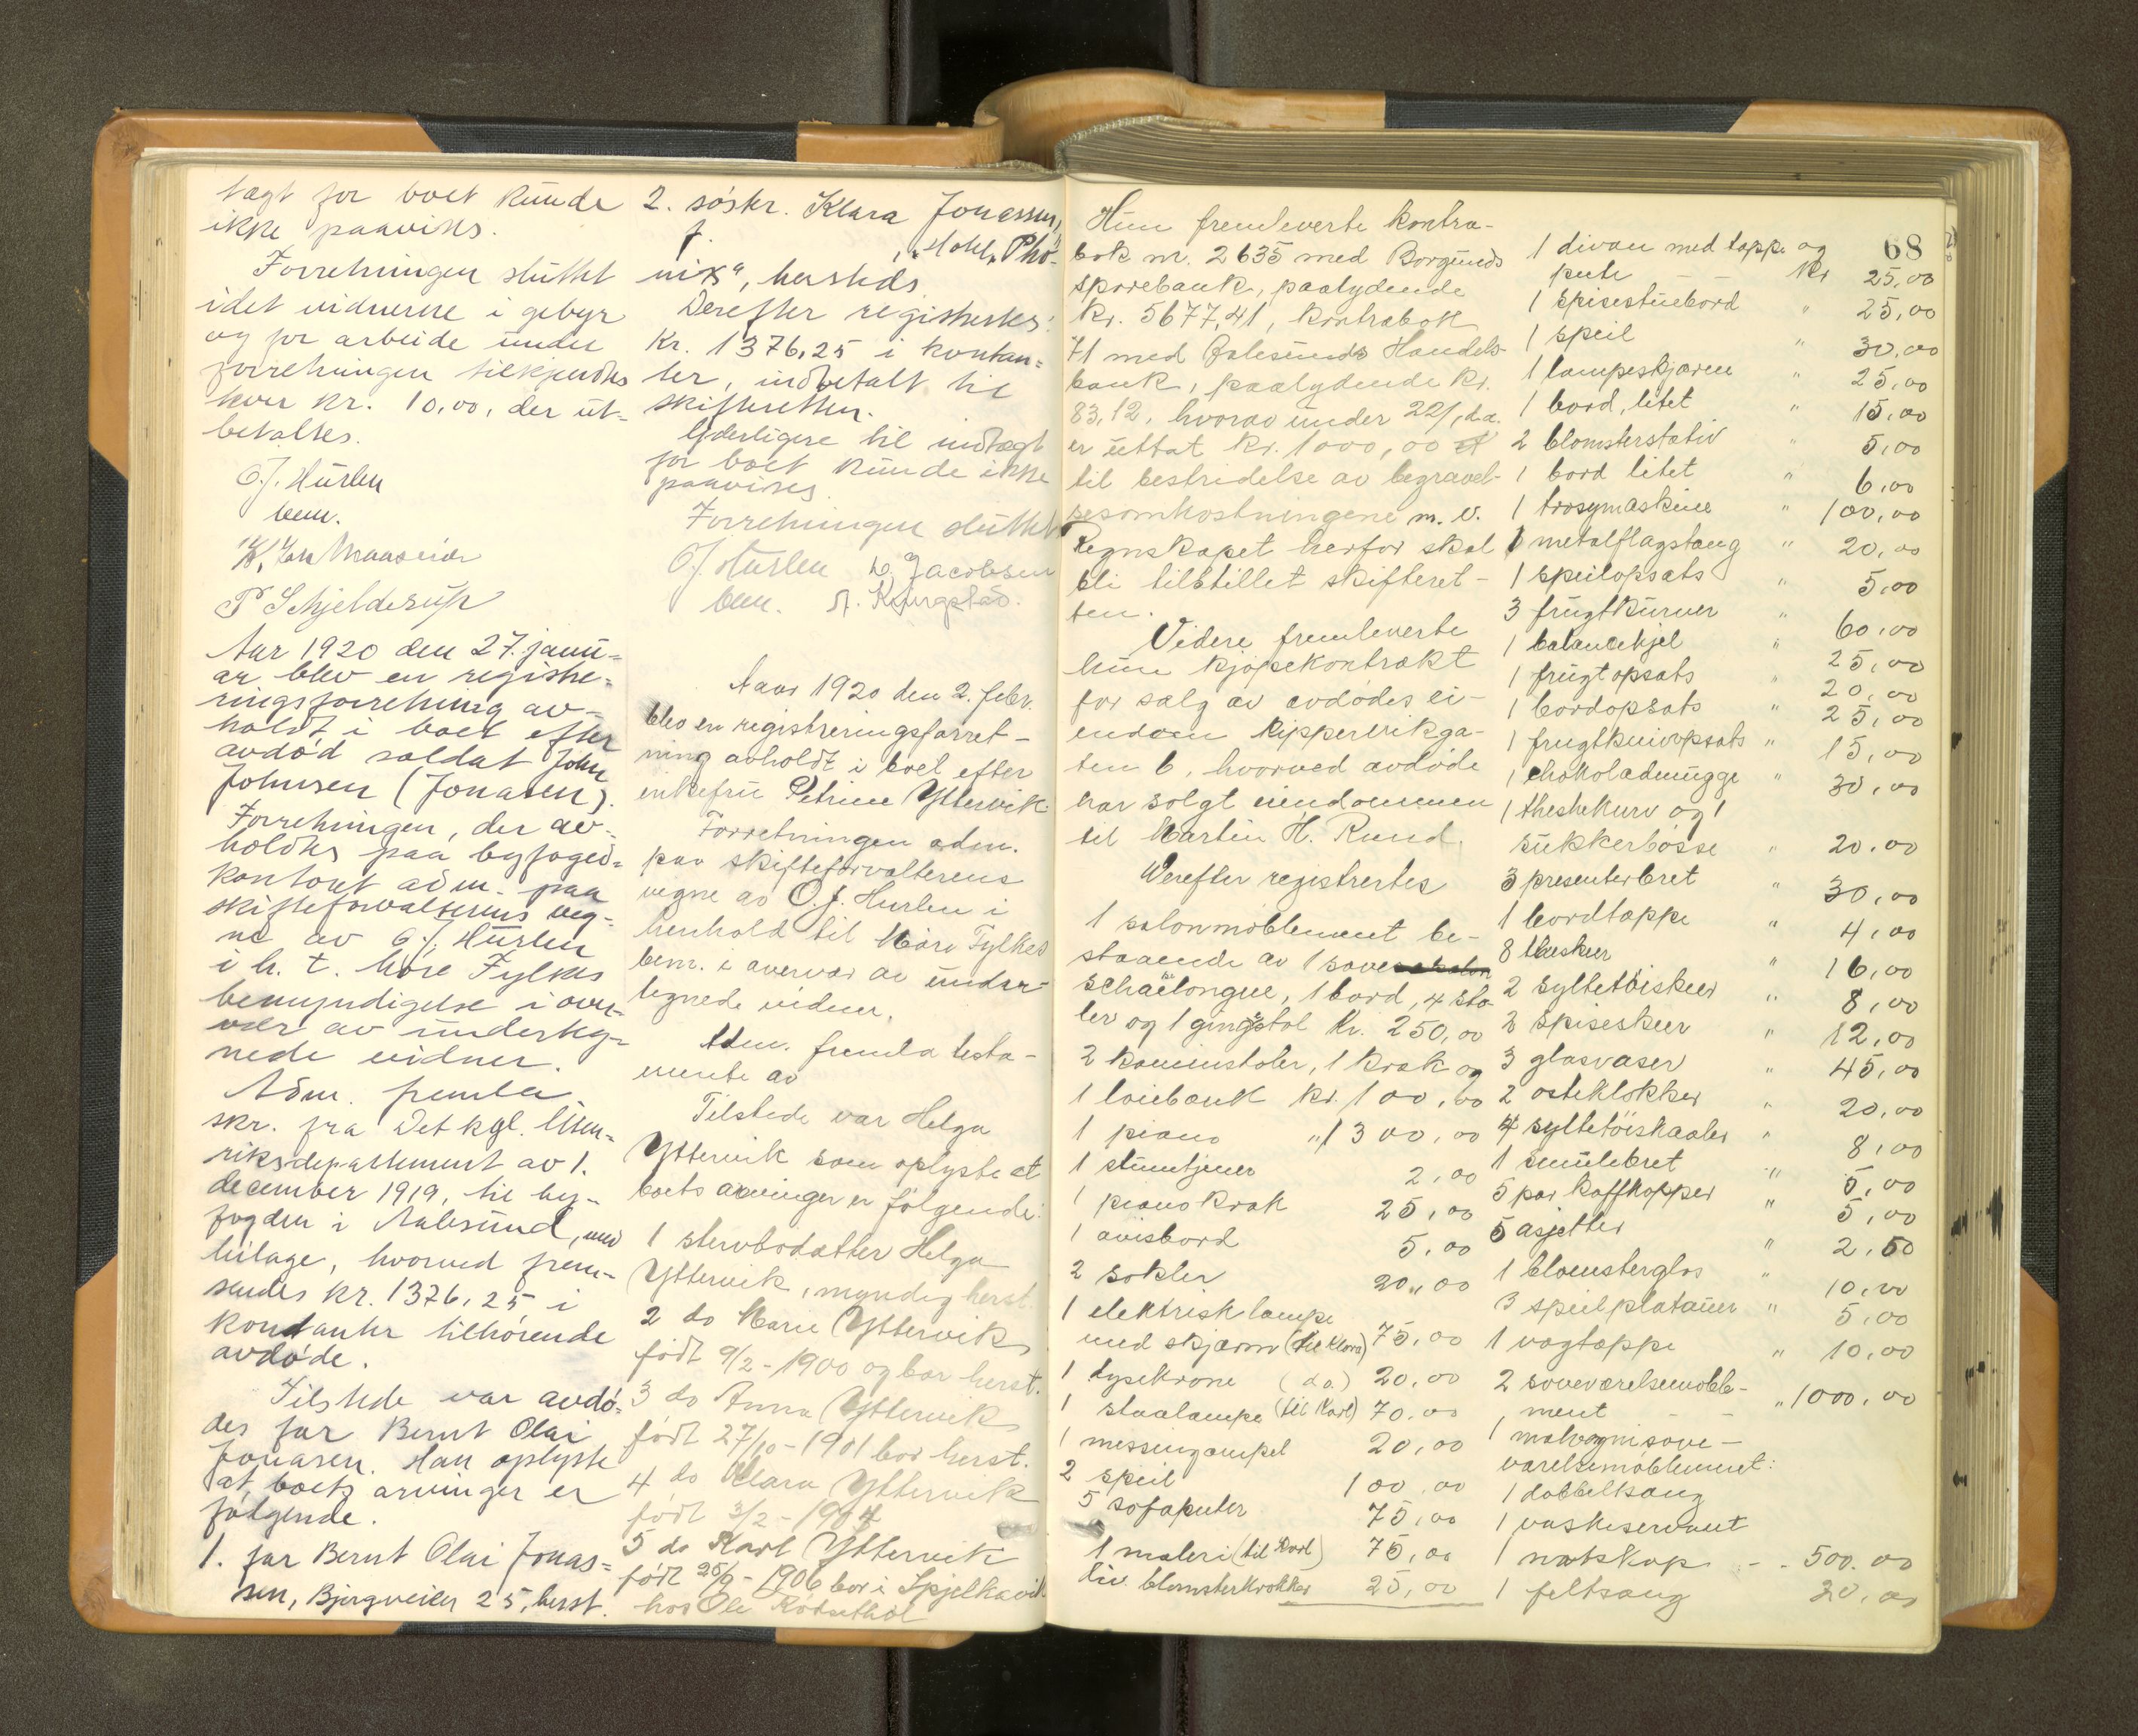 tægt for boet kunde
ikke paavises.
Forretningen sluttet
idet vidnerne i gebyr
og for arbeide under
forretningen tilkjendtes
hver kr. 10,00, der ut-
betaltes.
O.J. Hurlen
bem.
P Schjelderup
Aar 1920 den 27. janu-
ar blev en registre-
ringsforretning av-
holdt i boet efter
avdød soldat John
Johnsen (Jonasen).
Forretningen, der av-
holdtes paa byfoged-
kontoret adm. paa
skifteforvalterens veg-
ne av O.J. Hurlen
i h. t. Møre Fylkes
bemyndigelse i over-
vær av underteg-
nede vidner.
Adm. fremla
skr. fra Det kgl. Uten-
riksdepartement av 1.
december 1919, til by-
fogden i Aalesund, med
bilage, hvorved frem-
sendes kr. 1376,25 i
kontanter tilhørende
avdøde.
Tilstede var avdø-
des far Bernt Olai
Jonasen. Han oplyste
at boets arvinger er
følgende.
1. far Bernt Olai Jonas-
sen, Bjergveien 25, herst.
2. søskr. Klara Jonassen,
f.
, Hotel „Phø-
nix“, hersteds
Derefter registrertes:
Kr. 1376,25 i kontan-
ter, indbetalt til
skifteretten.
Yderligere til indtægt
for boet kunde ikke
paavises.
Forretningen sluttet
O.J. Hurlen D. Jacobsen
bem. A. Ringstad.
Aar 1920 den 2. febr.
blev en registreringsforret-
ning avholdt i boet efter
enkefru Petrine Yttervik
Forretningen adm.
paa skifteforvalterens
vegne av O.J. Hurlen i
henhold til Møre Fylkes
bem. i overvær av under-
tegnede vidner.
Adm. fremla testa-
mente av
Tilstede var Helga
Yttervik som oplyste at
boets arvinger er følgende:
1 stervbodatter Helga
Yttervik, myndig herst.
2 do Marie Yttervik
født 9/2-1900 og bor herst.
3 do Anna Yttervik
født 27/10-1901 bor herst.
4 do Klara Yttervik
født 3/2-1904
5 do Karl Yttervik
født 25/9-1906 bor i Spjelkavik
hos Ole
68
Hun fremleverte kontra-
bok nr. 2635 med Borgunds
sparebank, paalydende
kr. 5677,41, kontrabok
71 med Aalesunds Handels-
bank, paalydende kr.
83,12, hvorav under 22/1 d.a.
er uttat kr. 1000,00
til bestridelse av begravel-
sesomkostningene m.v.
Regnskapet herfor skal
bli tilstillet skifteret-
ten.
Videre fremleverte
hun kjøpekontrakt
for salg av avdødes ei-
endom Kipperviksga-
ten 6, hvorved avdøde
har solgt eiendommen
til Martin H. Rund.
Derefter registrertes
1 salonmøblement be-
staaende av 1 sove
schäselongue, 1 bord, 4 sto-
ler og 1 gyngestol kr. 250,00
2 kaminstoler, 1 krak og
1 loibenk kr. 100,00
1 piano " 1300,00
1 stumtjener 2,00
1 pianokrak 25,00
1 avisbord 5,00
2 sokler 20,00
1 elektrisk lampe
med skjærm (til Klara) 75,00
1 lysekrone (do.) 20,00
1 staalampe (til Karl) 70,00
1 messingampel 20,00
2 speil 100,00
5 sofaputer 75,00
1 maleri (til Karl) 75,00
div. blomsterkrukker 25,00
1 divan med tæppe og
pute - - kr 25,00
1 spisestuebord " 25,00
1 speil " 30,00
1 lampeskjærm " 25,00
1 bord, litet " 15,00
2 blomsterstativ " 5,00
1 bord litet " 6,00
1 trøsymaskine " 100,00
1 metalflagstang " 20,00
1 speilopsats " 5,00
3 frugtkurver " 60,00
1 balancekjel " 25,00
1 frugtopsats " 20,00
1 bordopsats " 25,00
1 frugtknivopsats " 15,00
1 chokolademugge " 30,00
1 theskekurv og 1
sukkerbøsse " 20,00
3 presenterbret " 30,00
1 bordtæppe " 4,00
8 theskeer " 16,00
2 syltetøiskeer " 8,00
2 spiseskeer " 12,00
3 glasvaser " 45,00
2 osteklokker " 20,00
4 syltetøiskaaler " 8,00
1 smulebret " 5,00
5 par kaffekopper " 5,00
5 asjetter " 2,50
1 blomsterglas " 10,00
3 speilplatauer " 5,00
1 vogtæppe " 10,00
2 soveværelsemøble-
ment - - " 1000,00
1 mahognisove-
værelsemøblement:
1 dobbeltseng
1 vaskeservant
1 natskap - - 500.00
1 feltseng 20,00